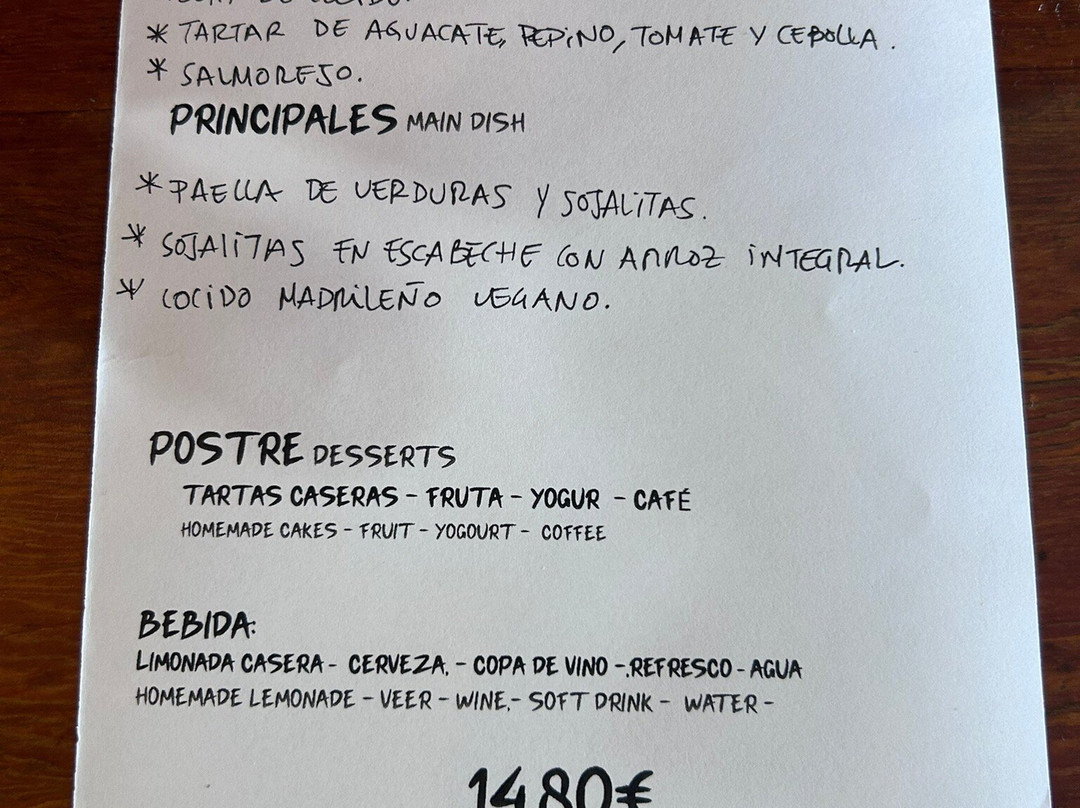 * TARTAR DE AGUACATE, PEPINO, TOMATE Y CEBOLLA.
* SALMOREJO.
PRINCIPALES MAIN DISH
* PAELLA DE VERDURAS Y SOJALITAS.
* SOJALITAS EN ESCABECHE CON ARROZ INTEGRAL.
* COCIDO MADRILEÑO VEGANO.
POSTRE DESSERTS
TARTAS CASERAS - FRUTA - YOGUR - CAFÉ
HOMEMADE CAKES - FRUIT - YOGOURT - COFFEE
BEBIDA:
LIMONADA CASERA - CERVEZA, - COPA DE VINO -.REFRESCO - AGUA
HOMEMADE LEMONADE - VEER - WINE,- SOFT DRINK - WATER -
14,80€